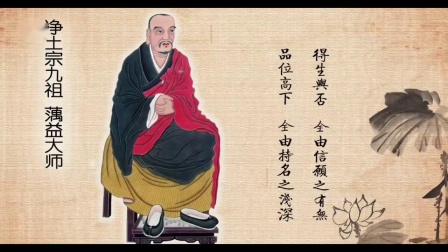 得生與否 全由信願之有無
品位高下 全由持名之淺深
净土宗九祖 蕅益大师